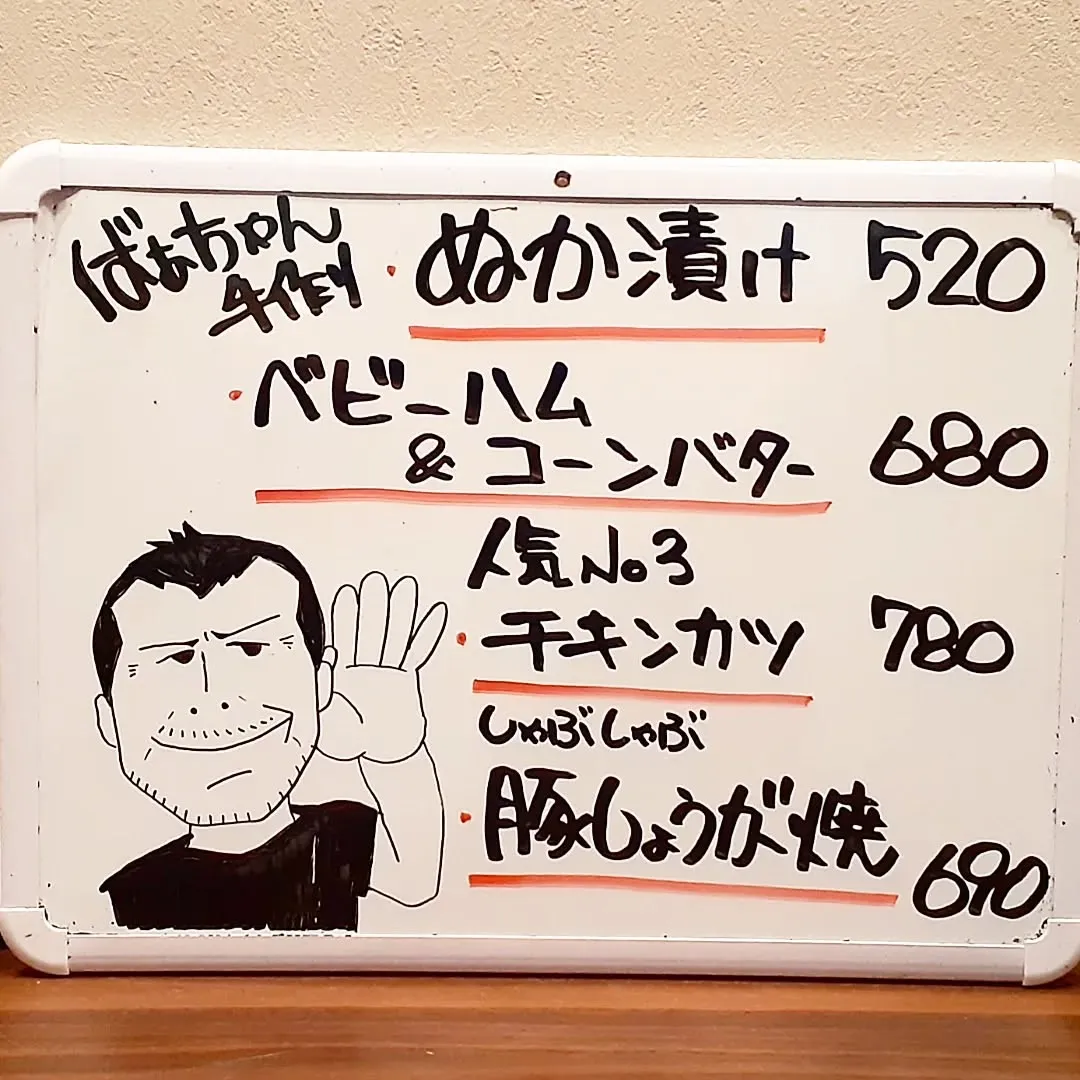 ばぁちゃん
手作り
・ぬか漬け 520
・ベビーハム
& コーンバター 680
人気No3
・チキンカツ 780
しゃぶしゃぶ
・豚しょうが焼 690